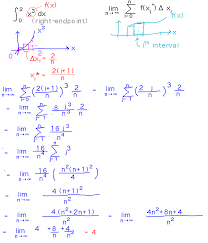 ∫₀² x³ dx
f(x)
(right-endpoint)
lim n→∞ Σ i=0 n f(xᵢ*) Δxᵢ
f(x)
x³
x
iᵗʰ interval
x
0
Δxᵢ = 2/n
xᵢ* = 2(i+1)/n
lim n→∞ Σ (2(i+1)/n)³ 2/n = lim n→∞ Σ j=1 n (2j/n)³ 2/n
= lim n→∞ Σ j=1 n 8/n³ j³ 2/n
= lim n→∞ Σ j=1 n 16/n⁴ j³
= lim n→∞ 16/n⁴ Σ j=1 n j³
= lim n→∞ 16/n⁴ (n²(n+1)²/4)
= lim n→∞ 4(n+1)²/n²
= lim n→∞ 4(n²+2n+1)/n² = lim n→∞ 4n²+8n+4/n²
= lim n→∞ 4 + 8/n + 4/n² = 4